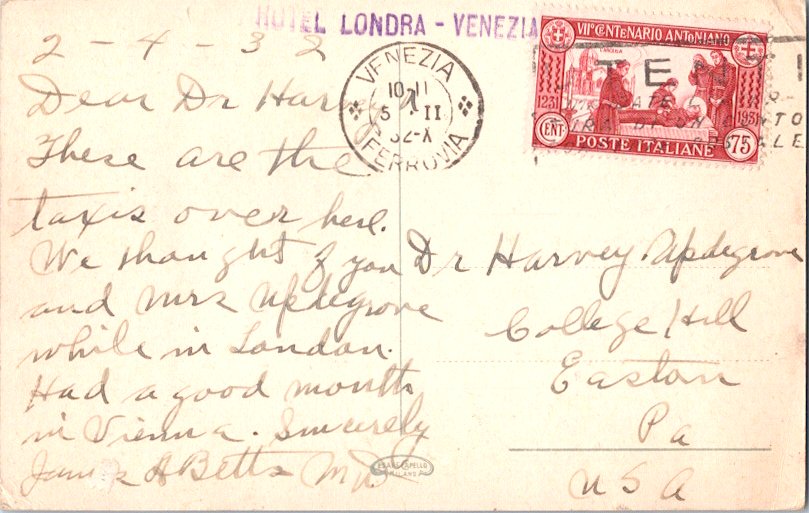 HOTEL LONDRA - VENEZIA
2 - 4 - 32
Dear Dr Harvey
These are the
taxis over here.
We thought of you
and Mrs Updegrove
while in London.
Had a good month
in Vienna. Sincerely
James A Betts MD
VENEZIA
10-11
5 II
32-X
FERROVIA
VII° CENTENARIO ANTONIANO
1231
1931
CENT
75
POSTE ITALIANE
Dr Harvey Updegrove
College Hill
Easton
Pa
USA
MILANO